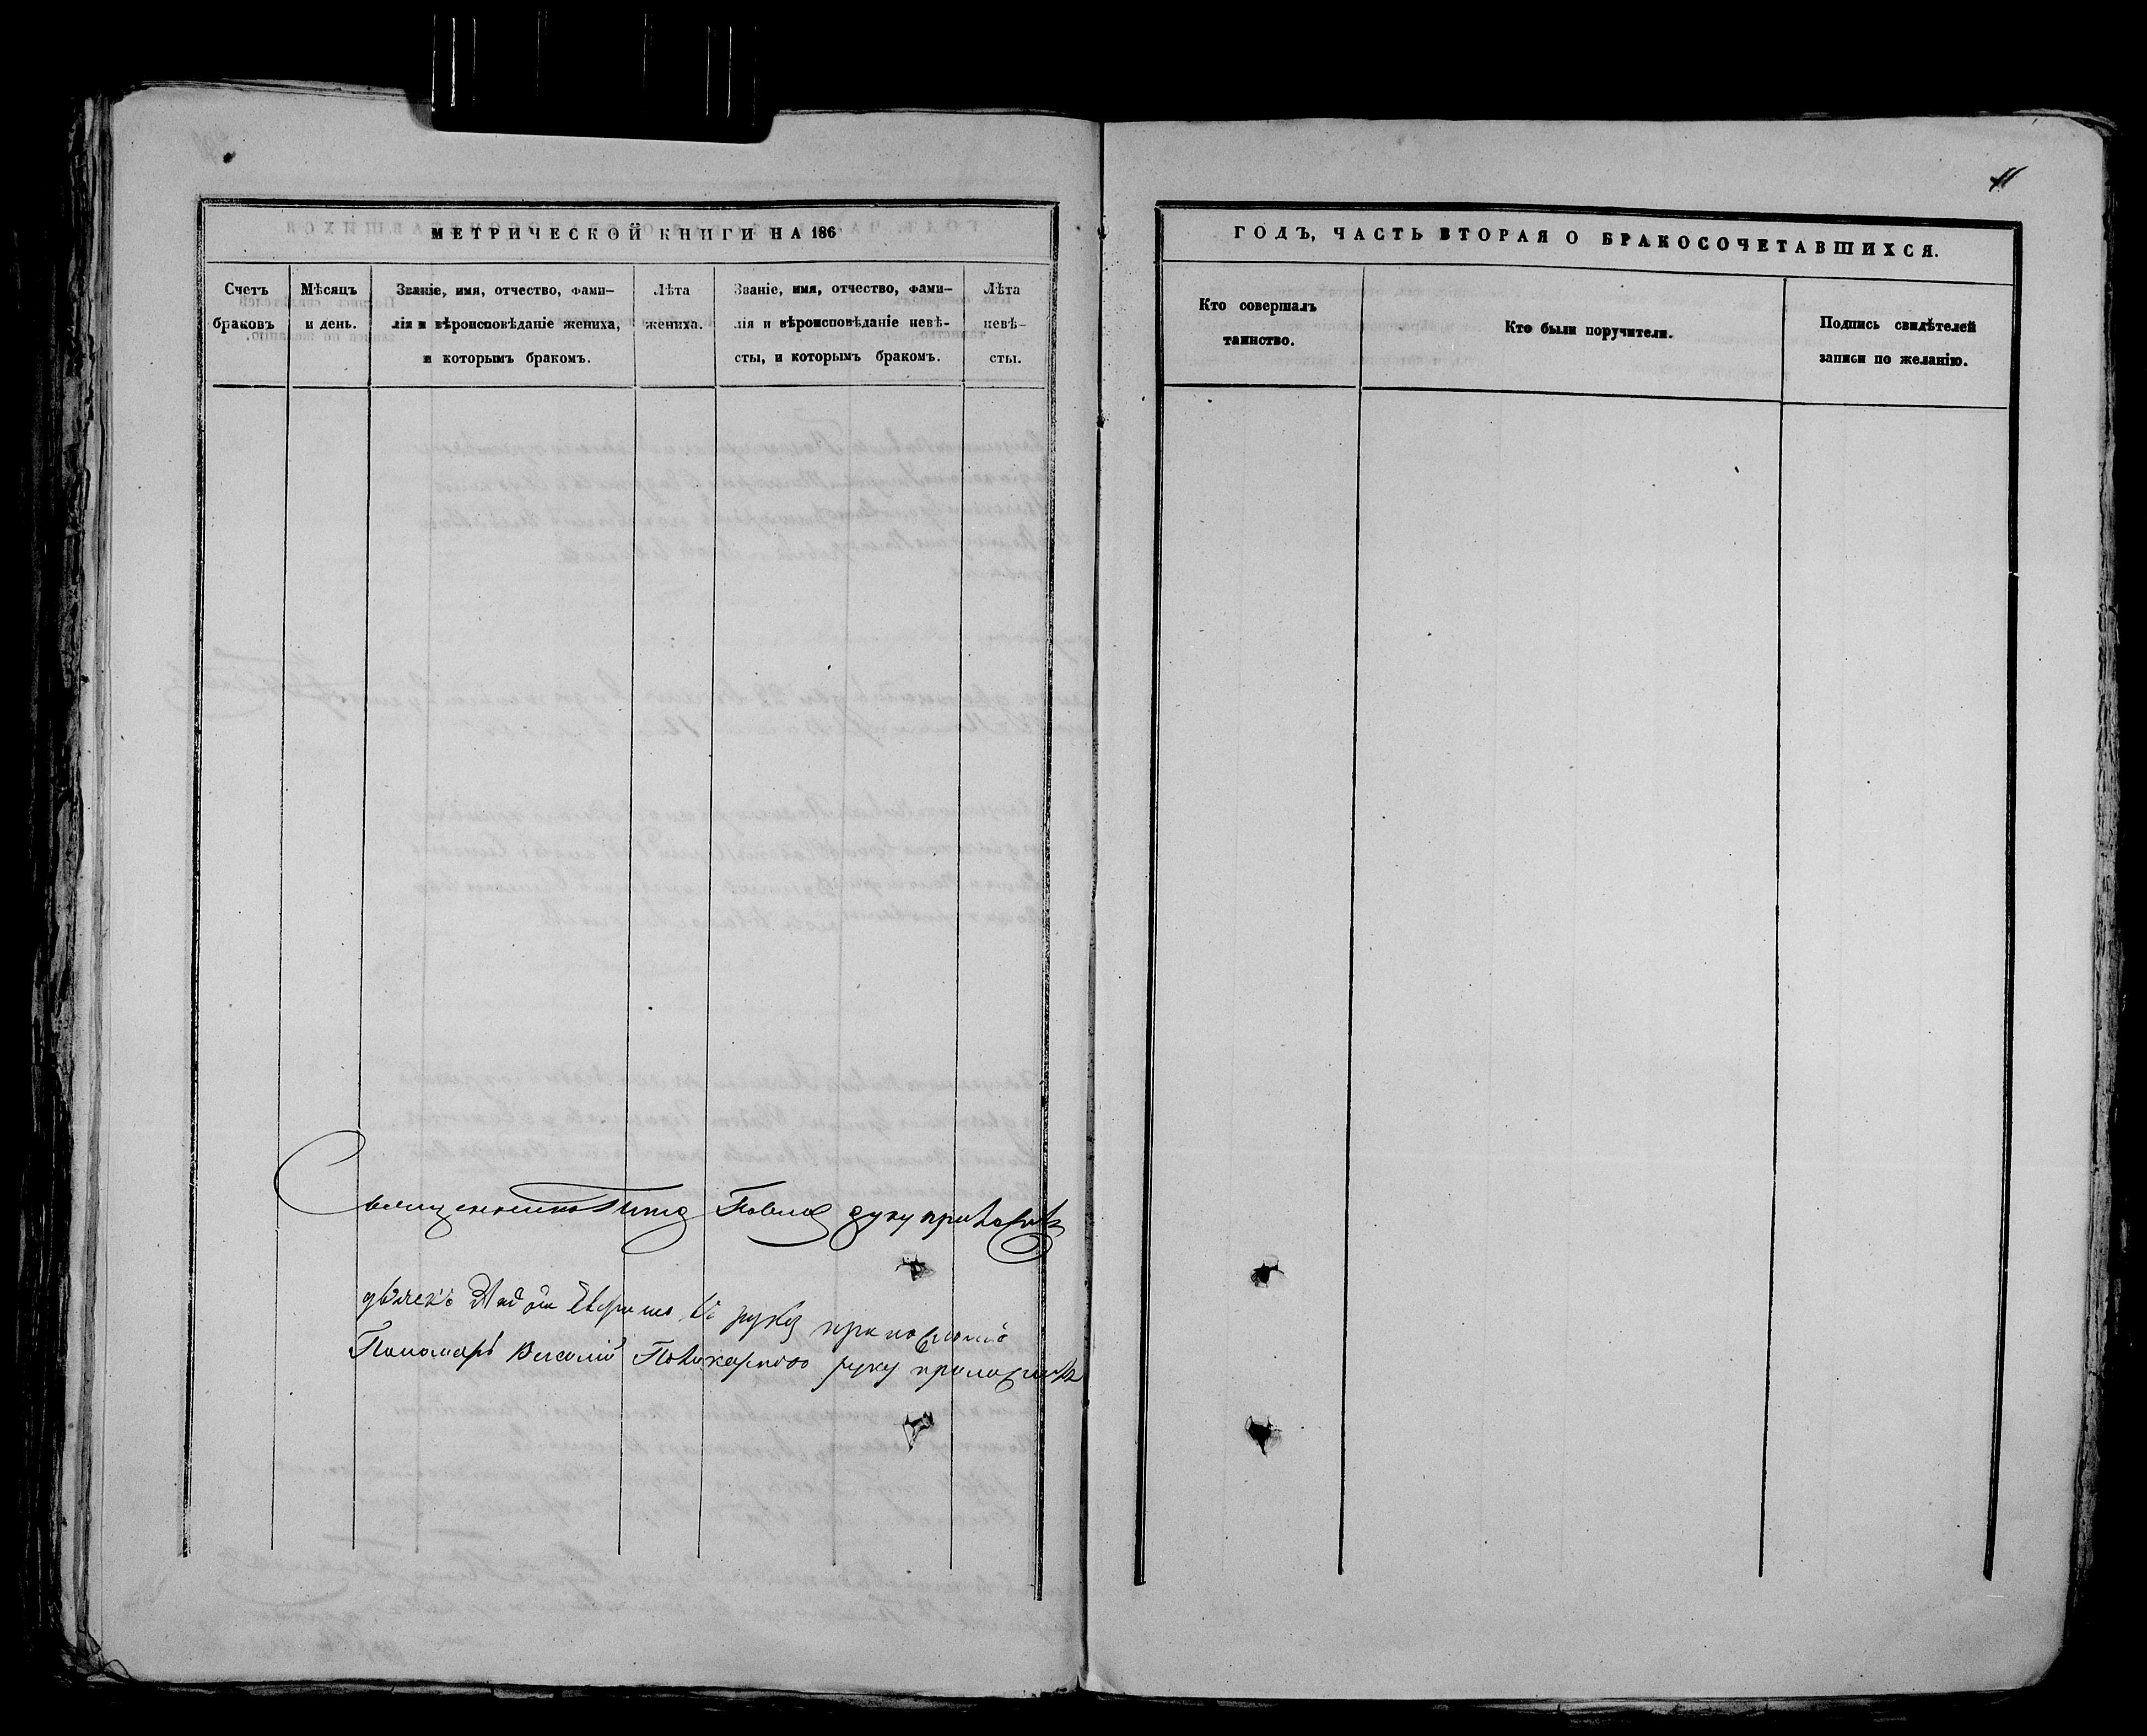 МЕТРИЧЕСКОЙ КНИГИ НА 186
Счетъ браковъ
Мѣсяцъ и день.
Званіе, имя, отчество, фами-
лія и вѣроисповѣданіе жениха,
и которымъ бракомъ.
Лѣта жениха.
Званіе, имя, отчество, фами-
лія и вѣроисповѣданіе невѣ-
сты, и которымъ бракомъ.
Лѣта невѣ-
сты.
Священникъ Павловъ руку приложилъ
дьячекъ руку приложилъ
Пономарь Василій Поликарповъ руку приложилъ
11
ГОДЪ, ЧАСТЬ ВТОРАЯ О БРАКОСОЧЕТАВШИХСЯ.
Кто совершалъ
таинство.
Кто были поручители.
Подпись свидѣтелей
записи по желанію.